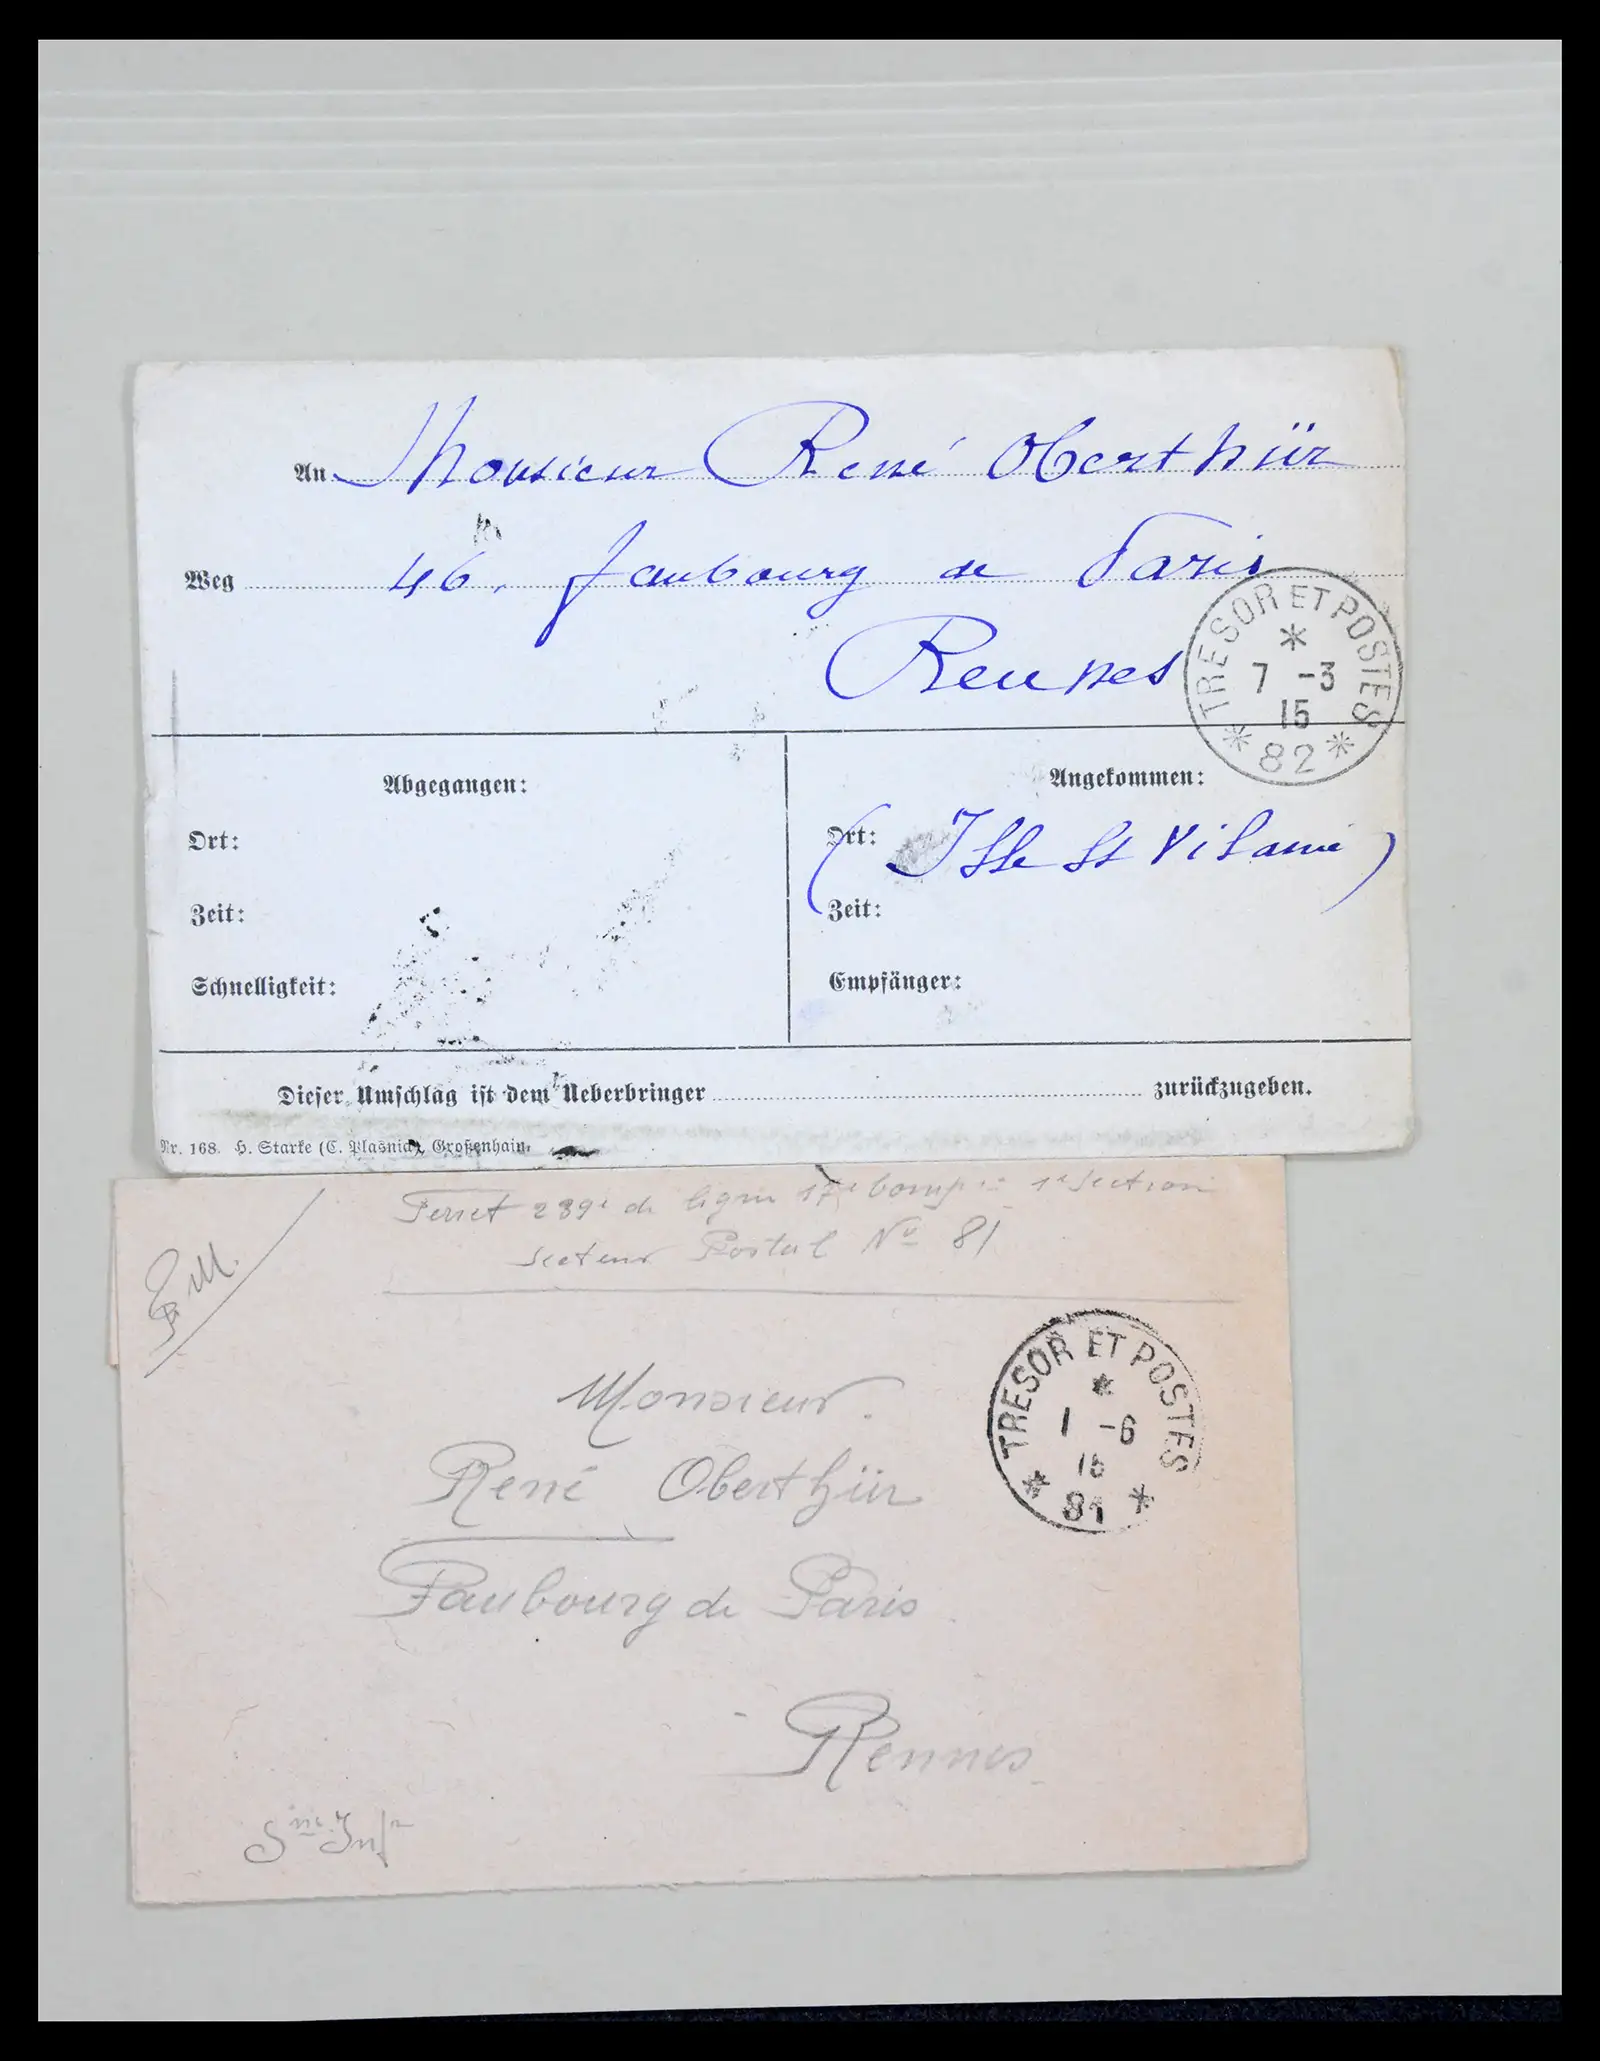 An Monsieur René Oberthür
Weg 46, faubourg de Paris
Rennes
TRESOR ET POSTES
*
7 -3
15
* 82 *
Abgegangen:
Angekommen:
Ort:
Ort:
( Ille et Vilaine )
Zeit:
Zeit:
Schnelligkeit:
Empfänger:
Dieser Umschlag ist dem Ueberbringer zurückzugeben.
Nr. 168. H. Starke (C. Plasnick), Großenhain.
Perret 239e de ligne 17e Comp ie 1e Section
Secteur Postal No 81
F.M.
TRESOR ET POSTES
*
1 -6
15
* 81 *
Monsieur
René Oberthür
Faubourg de Paris
Rennes